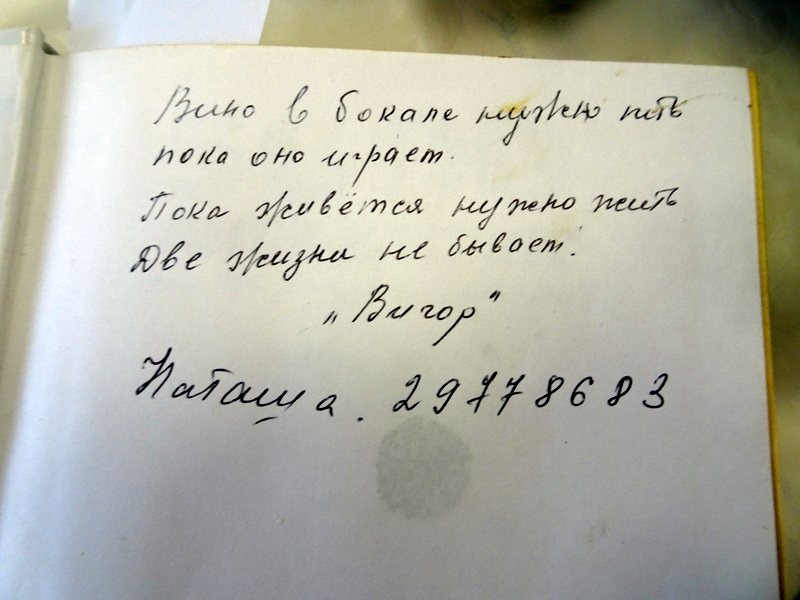 Вино в бокале нужно пить
пока оно играет.
Пока живётся нужно жить
Две жизни не бывает.
„Вигор"
Наташа. 29778683